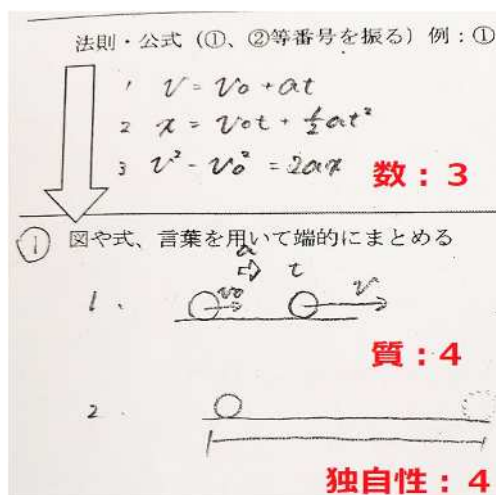 法則・公式（①、②等番号を振る）例：①
1 v = v₀ + at
2 x = v₀t + ½at²
3 v² - v₀² = 2ax
数：3
① 図や式、言葉を用いて端的にまとめる
a
1. v₀ t v
質：4
2.
独自性：4